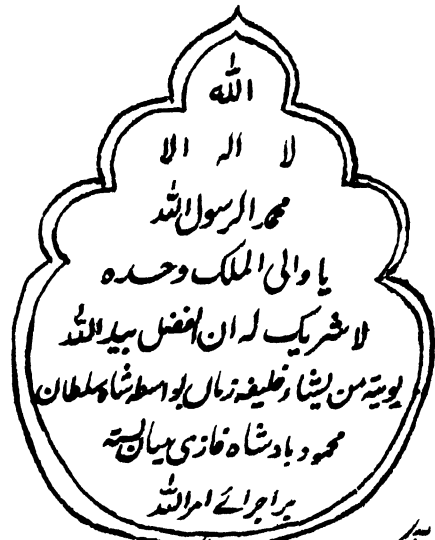 الله
لا اله الا
محمد الرسول الله
یا والی الملک وحده
لا شریک له ان الفضل بید الله
یوتیه من یشاء خلیفه زماں بواسطه شاه سلطان
محمود بادشاه غازی میان بسته
براجرائے امر الله